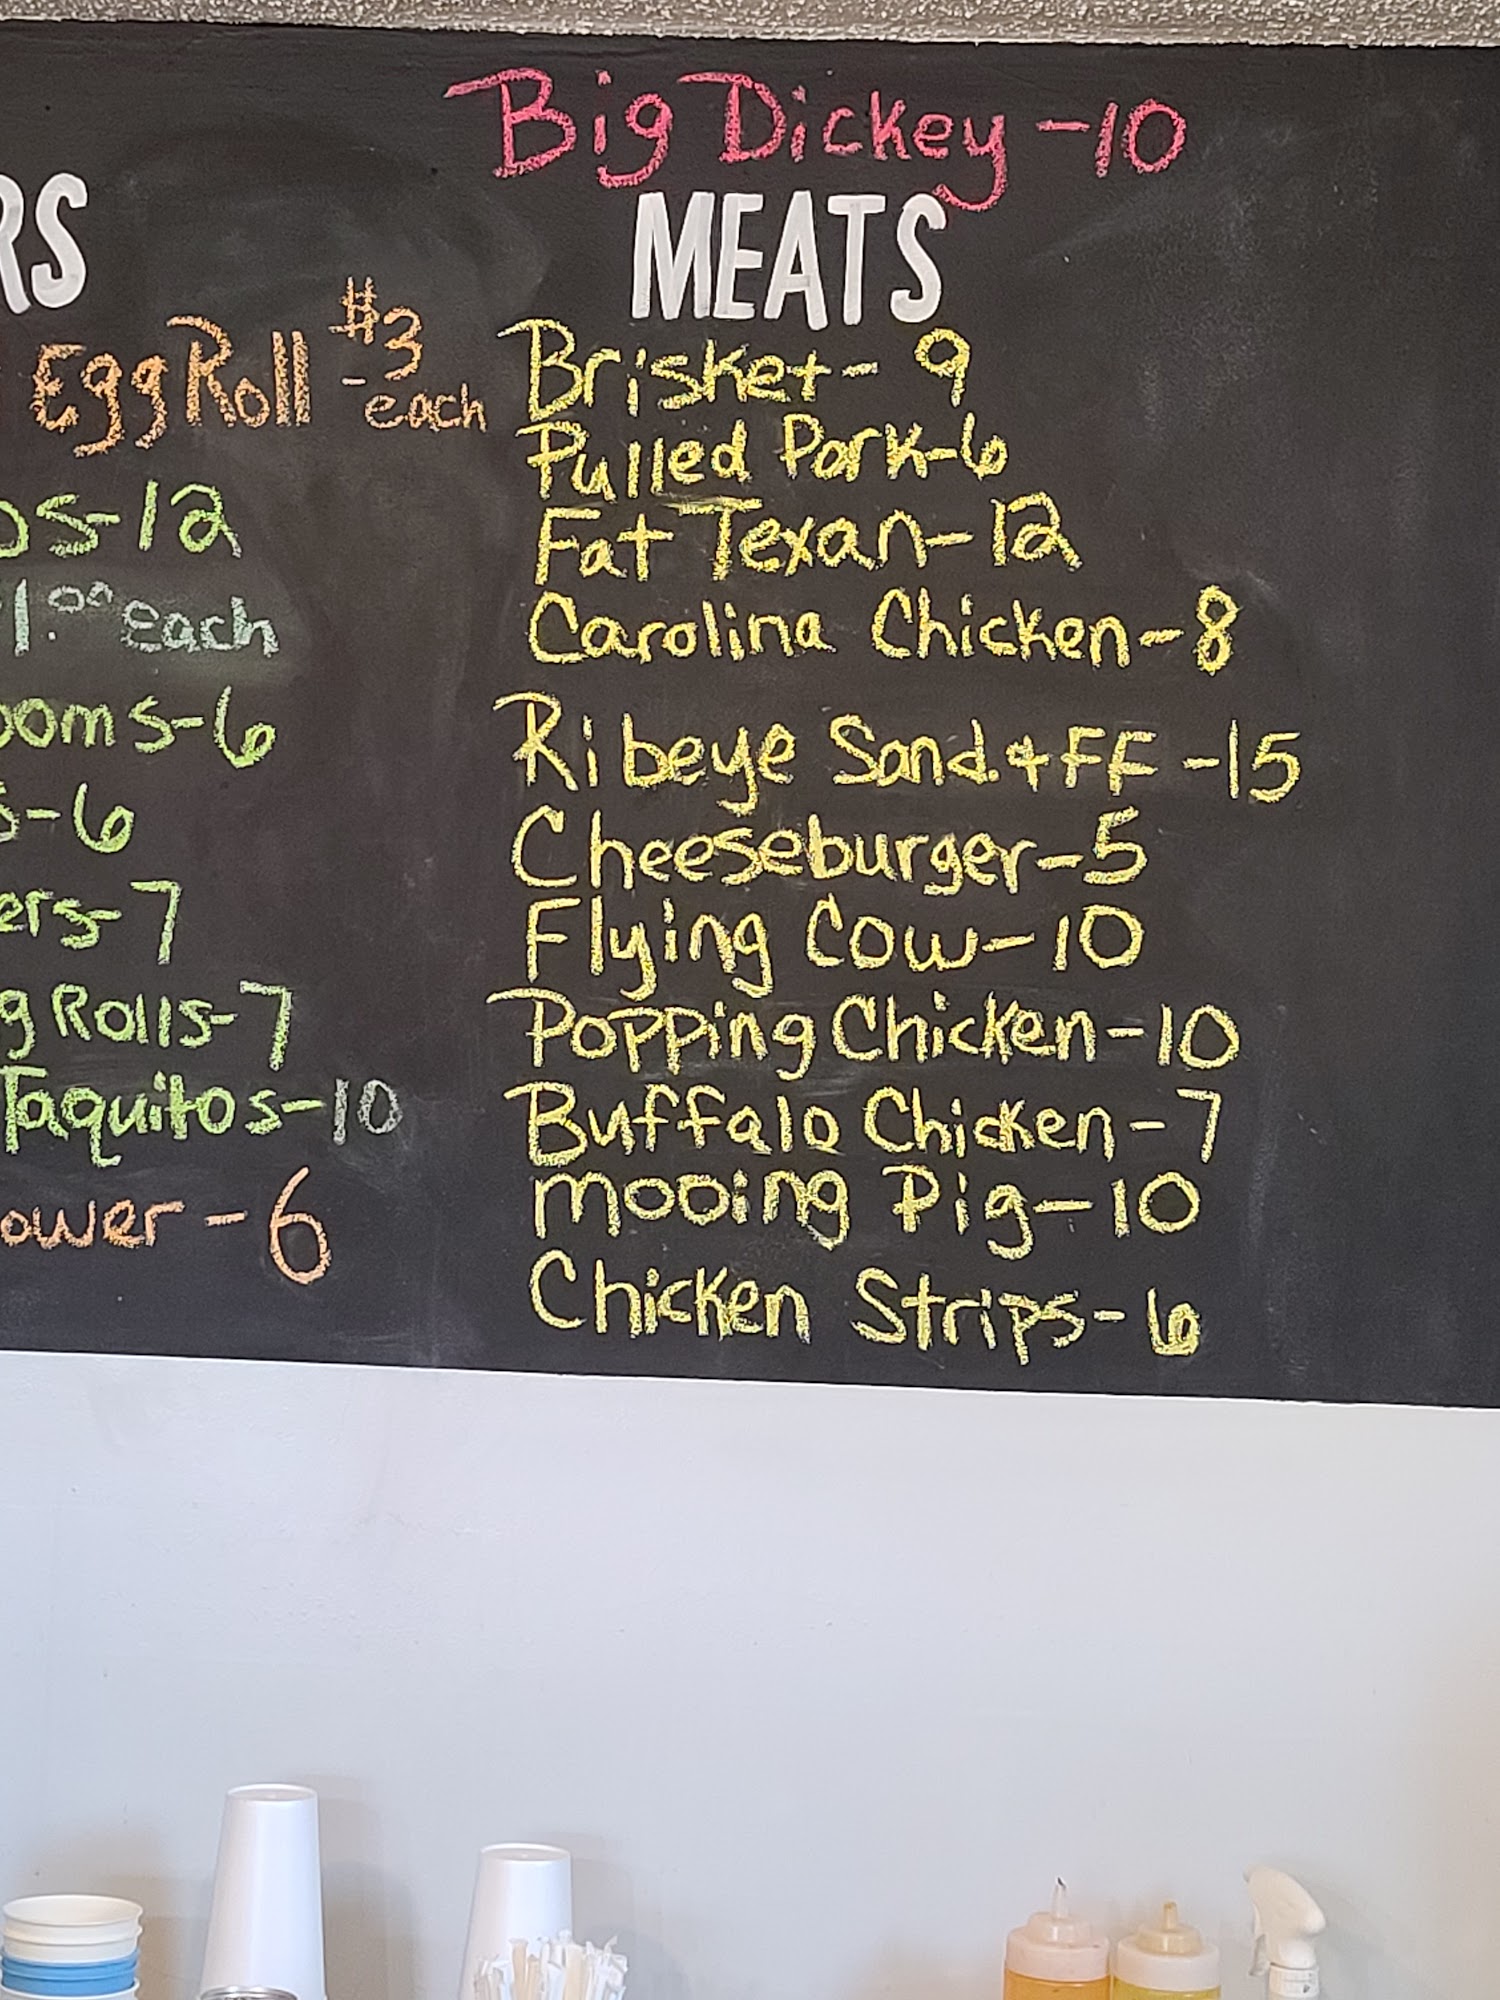 Big Dickey - 10
RS
Egg Roll - #3 each
os-12
1.00 each
ooms-6
s-6
ers-7
g Rolls-7
Taquitos-10
ower - 6
MEATS
Brisket - 9
Pulled Pork-6
Fat Texan-12
Carolina Chicken-8
Ribeye Sand. & FF -15
Cheeseburger-5
Flying Cow-10
Popping Chicken-10
Buffalo Chicken-7
mooing Pig-10
Chicken Strips-6